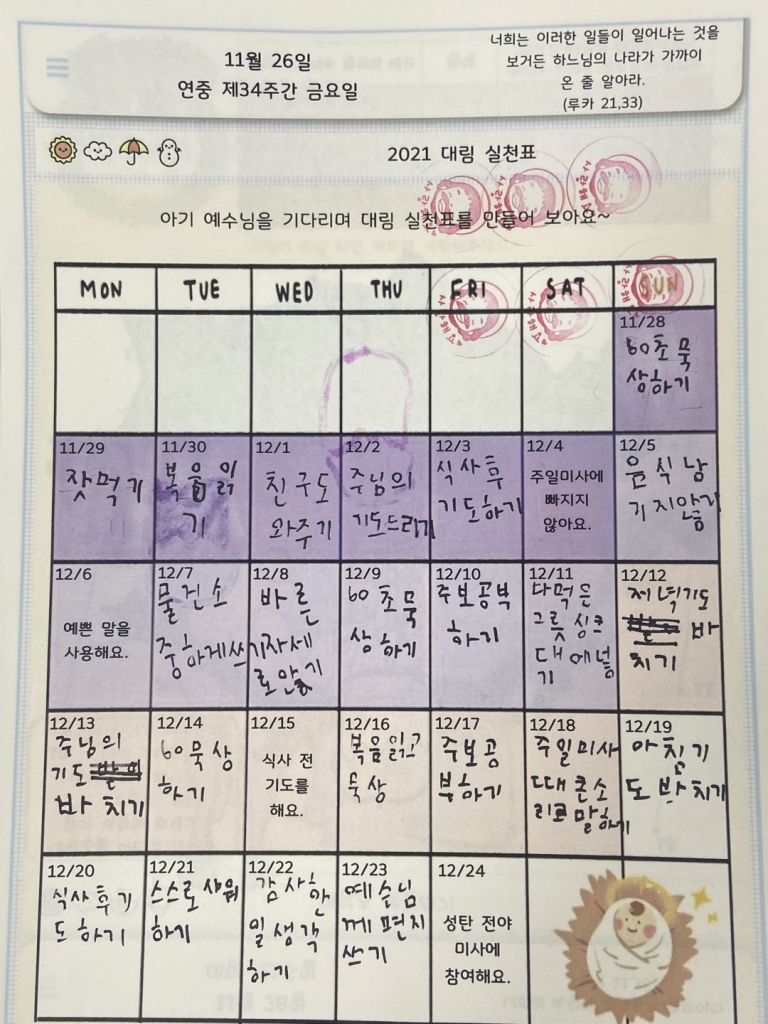 11월 26일
연중 제34주간 금요일
너희는 이러한 일들이 일어나는 것을
보거든 하느님의 나라가 가까이
온 줄 알아라.
(루카 21,33)
2021 대림 실천표
아기 예수님을 기다리며 대림 실천표를 만들어 보아요~
MON TUE WED THU FRI SAT SUN
11/28
60초 묵
상하기
11/29
잣먹기
11/30
복음 읽
기
12/1
친구도
와주기
12/2
주님의
기도드리기
12/3
식사후
기도하기
12/4
주일미사에
빠지지
않아요.
12/5
음식남
기지않기
12/6
예쁜 말을
사용해요.
12/7
물건소
중하게쓰기
12/8
바른
자세
로앉기
12/9
60초묵
상하기
12/10
주보공부
하기
12/11
다먹은
그릇 싱크
대에넣
기
12/12
저녁기도
바
치기
12/13
주님의
기도
바치기
12/14
60묵상
하기
12/15
식사 전
기도를
해요.
12/16
복음읽고
묵상
12/17
주보공
부하기
12/18
주일미사
때큰소
리로말하기
12/19
아침기
도 바치기
12/20
식사후기
도하기
12/21
스스로 샤워
하기
12/22
감사한
일생각
하기
12/23
예수님
께편지
쓰기
12/24
성탄 전야
미사에
참여해요.